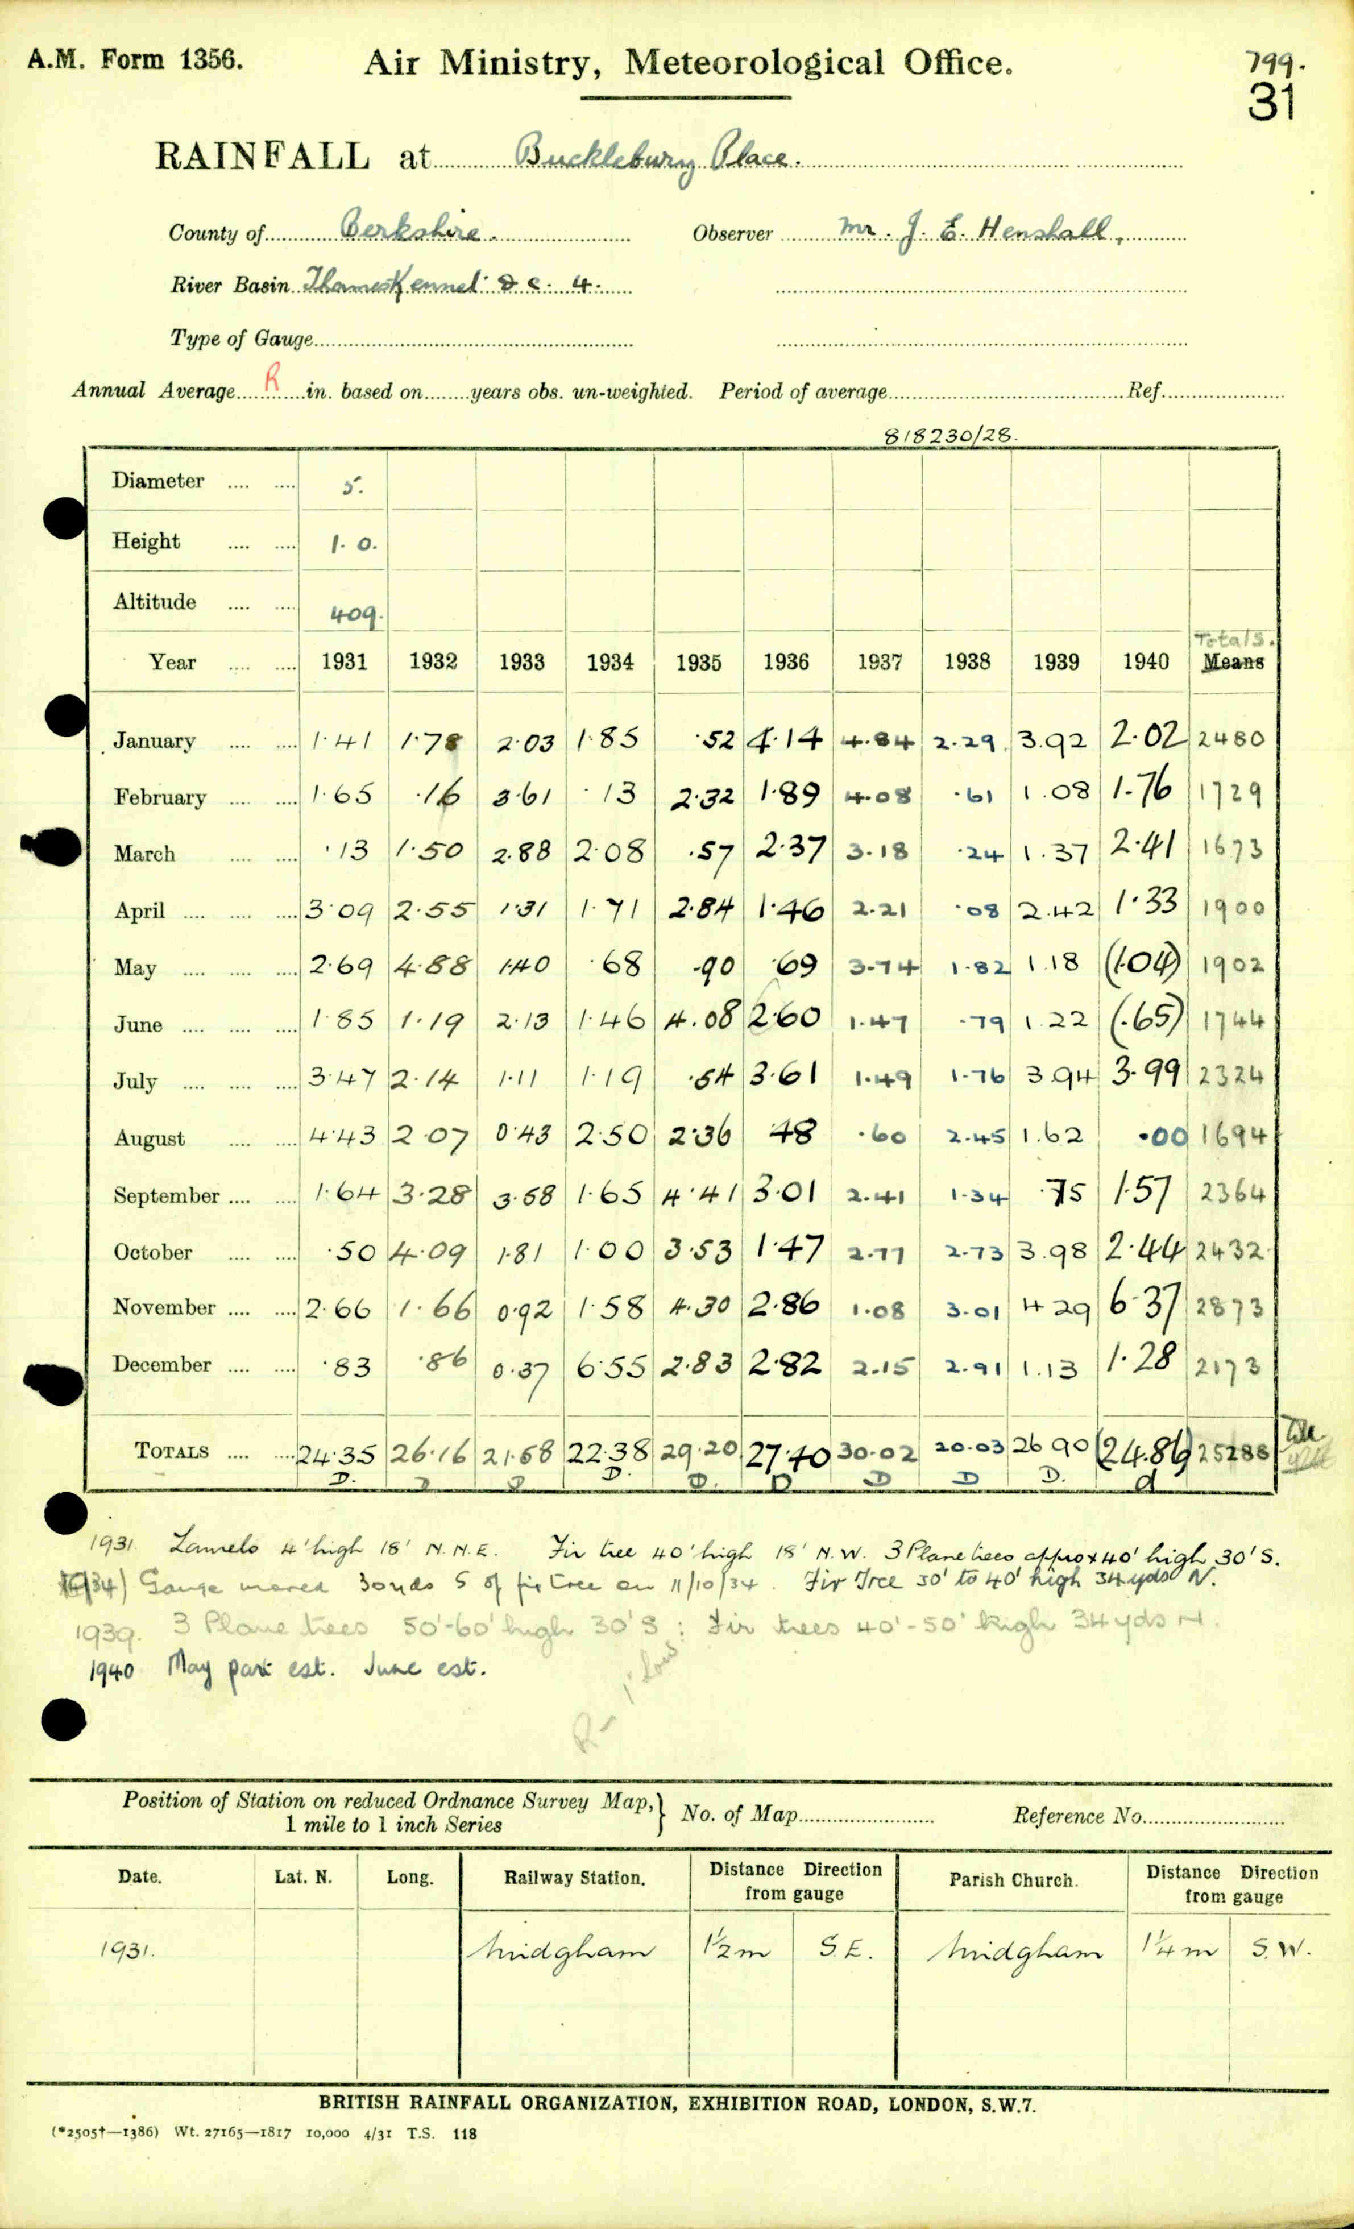 A.M. Form 1356.
Air Ministry, Meteorological Office.
799.
31
RAINFALL at Bucklebury Place.
County of Berkshire. Observer Mr. J. E. Henshall.
River Basin Thames Kennet &c. 4.
Type of Gauge
Annual Average R in. based on years obs. un-weighted. Period of average Ref.
818230/28.
Diameter 5.
Height 1.0.
Altitude 409.
Totals.
Year 1931 1932 1933 1934 1935 1936 1937 1938 1939 1940 Means
January 1.41 1.78 2.03 1.85 .52 4.14 4.84 2.29 3.92 2.02 2480
February 1.65 .16 3.61 .13 2.32 1.89 4.08 .61 1.08 1.76 1729
March .13 1.50 2.88 2.08 .57 2.37 3.18 .24 1.37 2.41 1673
April 3.09 2.55 1.31 1.71 2.84 1.46 2.21 .08 2.42 1.33 1900
May 2.69 4.88 1.40 .68 .90 .69 3.74 1.82 1.18 (1.04) 1902
June 1.85 1.19 2.13 1.46 4.08 2.60 1.47 .79 1.22 (.65) 1744
July 3.47 2.14 1.11 1.19 .54 3.61 1.49 1.76 3.94 3.99 2324
August 4.43 2.07 0.43 2.50 2.36 .48 .60 2.45 1.62 .00 1694
September 1.64 3.28 3.58 1.65 4.41 3.01 2.41 1.34 .75 1.57 2364
October .50 4.09 1.81 1.00 3.53 1.47 2.77 2.73 3.98 2.44 2432
November 2.66 1.66 0.92 1.58 4.30 2.86 1.08 3.01 4.29 6.37 2873
December .83 .86 0.37 6.55 2.83 2.82 2.15 2.91 1.13 1.28 2173
TOTALS 24.35 26.16 21.58 22.38 29.20 27.40 30.02 20.03 26.90 (24.86) 25288
D. D D D. D. D D D D. d
1931 Laurels 4' high 18' N.N.E. Fir tree 40' high 18' N.W. 3 Plane trees approx 40' high 30' S.
1934) Gauge moved 30 yds S of fir tree on 11/10/34. Fir Tree 30' to 40' high 34 yds N.
1939. 3 Plane trees 50'-60' high 30' S; Fir trees 40'-50' high 34 yds N.
1940 May part est. June est.
Position of Station on reduced Ordnance Survey Map,} No. of Map Reference No.
1 mile to 1 inch Series
Date. Lat. N. Long. Railway Station. Distance Direction from gauge Parish Church. Distance Direction from gauge
1931. Midgham 1½ m S.E. Midgham 1¼ m S.W.
BRITISH RAINFALL ORGANIZATION, EXHIBITION ROAD, LONDON, S.W.7.
(*2505†—1386) Wt. 27165—1817 10,000 4/31 T.S. 118